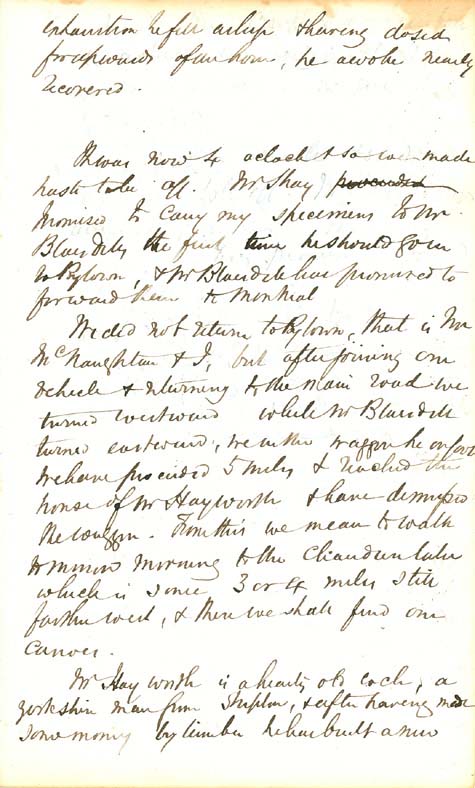 exhaustion he fell asleep & having dosed
for upwards of an hour, he awoke nearly
recovered.
It was now 4 o'clock & so we made
haste to be off. Mr Shay proceeded
promised to carry my specimens to Mr
Blaisdell the first time he should go in
to Bytown, & Mr Blaisdell has promised to
forward them to Montreal
We did not return to Bytown, that is Mr
McNaughton & I, but after joining our
vehicle & returning to the main road we
turned westward while Mr Blaisdell
turned eastward, we in the waggon he on foot
We have proceeded 5 miles & reached the
house of Mr Hayworth & have dismissed
the waggon. From this we mean to walk
tomorrow morning to the Chaudiere lake
which is some 3 or 4 miles still
farther west, & there we shall find our
canoes.
Mr Hayworth is a hearty old cock, a
yorkshire man from & after having made
some money by timber he has built a new